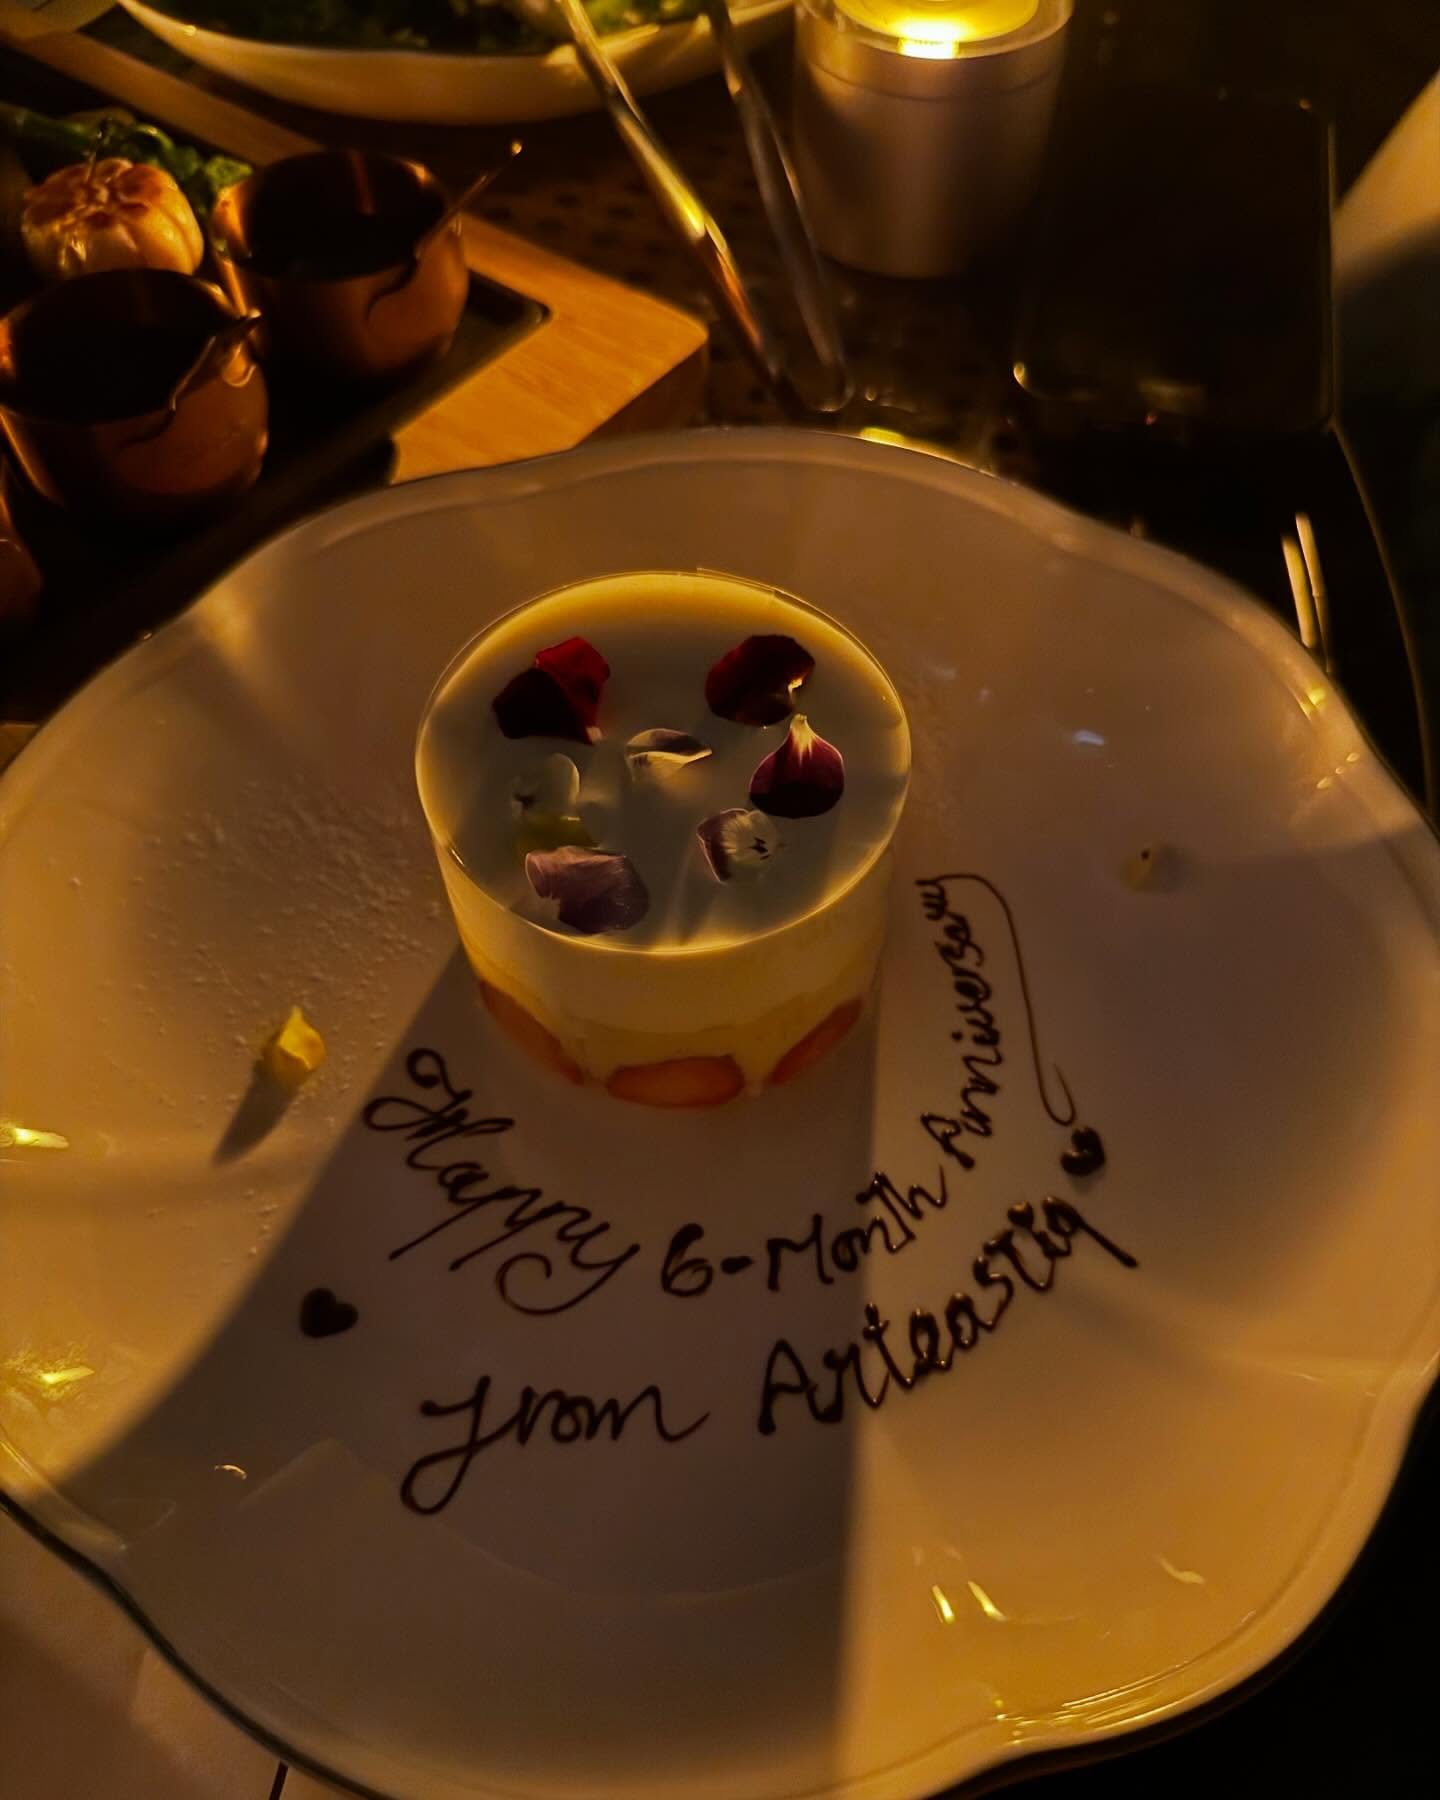 Happy 6-Month Anniversary
from Arteastiq